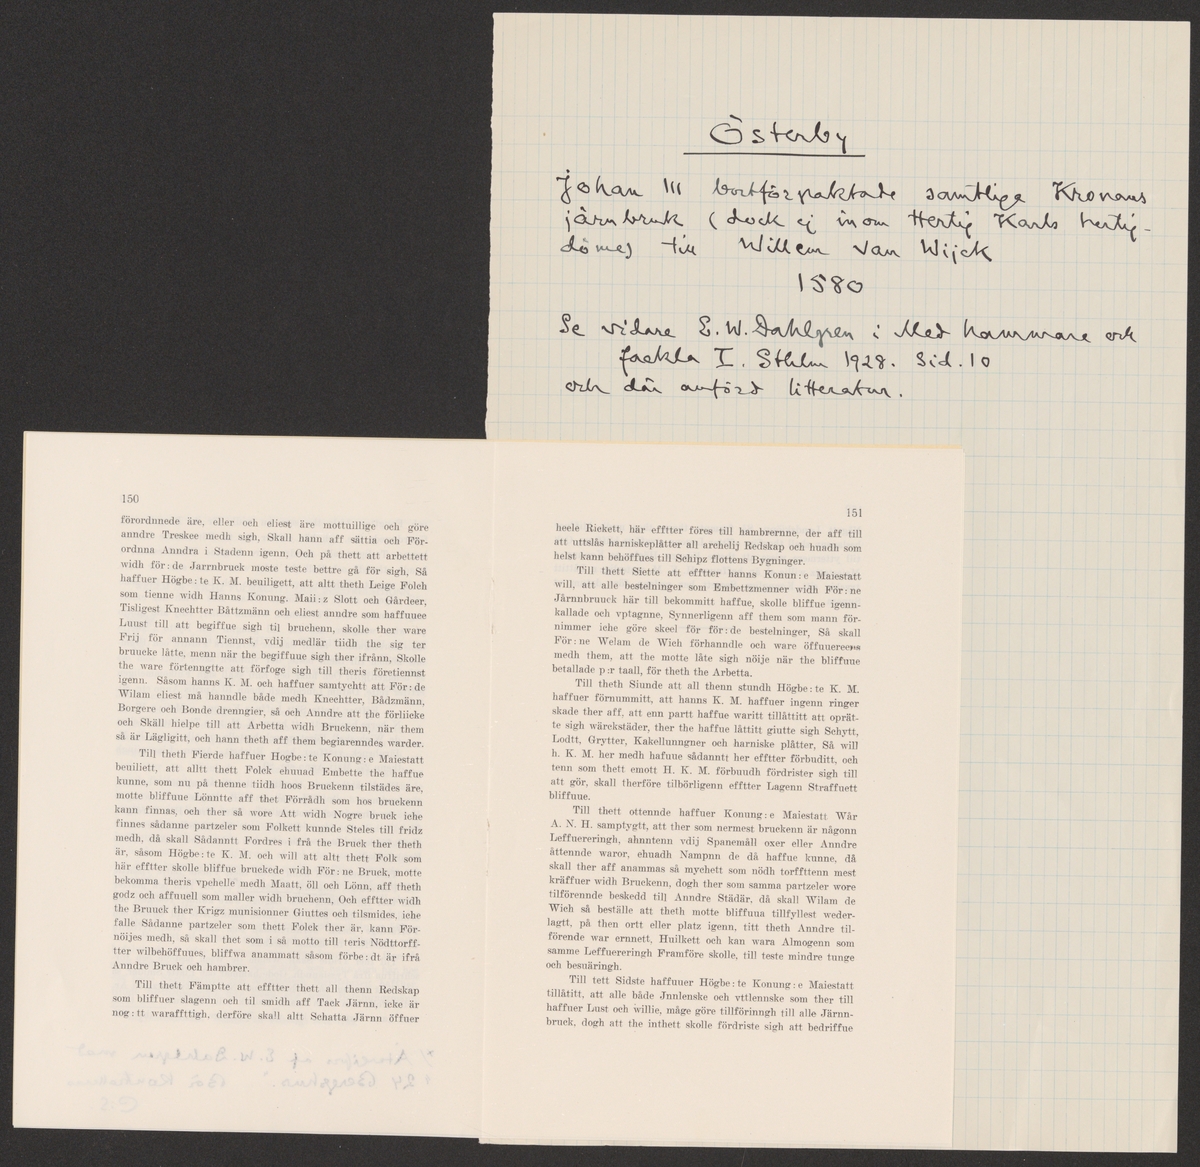 Österby
Johan III bortförpaktade samtliga Kronans
järnbruk (dock ej inom Hertig Karls hertig-
döme) till Willem van Wijck
1580
Se vidare E. W. Dahlgren i Med hammare och
fackla I. Sthlm 1928. Sid. 10
och där anförd litteratur.
150
förordnnede äre, eller och eliest äre mottuillige och göre
anndre Treskee medh sigh, Skall hann aff sättia och För-
ordnna Anndra i Stadenn igenn, Och på thett att arbettett
widh för:de Jarrnbruck moste teste bettre gå för sigh, Så
haffuer Högbe:te K. M. beuiligett, att altt theth Leige Folch
som tienne widh Hanns Konung. Maii:z Slott och Gårdeer,
Tisligest Knechtter Båttzmänn och eliest anndre som haffuuee
Luust till att begiffue sigh til bruchenn, skolle ther ware
Frij för annann Tiennst, vdij medlär tiidh the sig ter
bruucke låtte, menn när the begiffuue sigh ther ifrånn, Skolle
the ware förtenngtte att förfoge sigh till theris företiennst
igenn. Såsom hanns K. M. och haffuer samtychtt att För:de
Wilam eliest må hanndle både medh Knechtter, Bådzmänn,
Borgere och Bonde drenngier, så och Anndre att the förliicke
och Skäll hielpe till att Arbetta widh Bruckenn, när them
så är Lägligitt, och hann theth aff them begiarenndes warder.
Till theth Fierde haffuer Hogbe:te Konung:e Maiestatt
beuiliett, att alltt thett Folck ehuuad Embette the haffue
kunne, som nu på thenne tiidh hoos Bruckenn tilstädes äre,
motte bliffuue Lönntte aff thet Förrådh som hos bruckenn
kann finnas, och ther så wore Att widh Nogre bruck iche
finnes sådanne partzeler som Folkett kunnde Steles till fridz
medh, då skall Sådanntt Fordres i frå the Bruck ther theth
är, såsom Högbe:te K. M. och will att altt thett Folk som
här efftter skolle bliffue bruckede widh För:ne Bruck, motte
bekomma theris vpehelle medh Maatt, öll och Lönn, aff theth
godz och affuuell som maller widh bruchenn, Och efftter widh
the Bruuck ther Krigz munisionner Giuttes och tilsmides, iche
falle Sådanne partzeler som thett Folck ther är, kann För-
nöijes medh, så skall thet som i så motto till teris Nödttorff-
tter wilbehöffuues, bliffwa anammatt såsom förbe:dt är ifrå
Anndre Bruck och hambrer.
Till thett Fämptte att efftter thett all thenn Redskap
som bliffuer slagenn och til smidh aff Tack Järnn, icke är
nog:tt waraffttigh, derföre skall altt Schatta Järnn öffuer
151
heele Rickett, här efftter föres till hambrernne, der aff till
att uttslås harniskeplåtter all archelij Redskap och huadh som
helst kann behöffues till Schipz flottens Bygninger.
Till thett Siette att efftter hanns Konun:e Maiestatt
will, att alle bestelninger som Embettzmenner widh För:ne
Järnnbruuck här till bekommitt haffue, skolle bliffue igenn-
kallade och vptagnne, Synnerligenn aff them som mann för-
nimmer iche göre skeel för för:de bestelninger, Så skall
För:ne Welam de Wich förhanndle och ware öffuuereens
medh them, att the motte låte sigh nöije när the bliffuue
betallade p:r taall, för theth the Arbetta.
Till theth Siunde att all thenn stundh Högbe:te K. M.
haffuer förnummitt, att hanns K. M. haffuer ingenn ringer
skade ther aff, att enn partt haffue waritt tillåttitt att oprät-
te sigh wärckstäder, ther the haffue låttitt giutte sigh Schytt,
Lodtt, Grytter, Kakellunngner och harniske plåtter, Så will
h. K. M. her medh hafuue sådanntt her efftter förbuditt, och
tenn som thett emott H. K. M. förbuudh fördrister sigh till
att gör, skall therföre tilbörligenn efftter Lagenn Straffuett
bliffuue.
Till thett ottennde haffuer Konung:e Maiestatt Wår
A. N. H. samptygtt, att ther som nermest bruckenn är någonn
Leffuereringh, ahnntenn vdij Spanemåll oxer eller Anndre
åttennde waror, ehuadh Nampnn de då haffue kunne, då
skall ther aff anammas så mychett som nödh torffttenn mest
kräffuer widh Bruckenn, dogh ther som samma partzeler wore
tilförennde beskedd till Anndre Städär, då skall Wilam de
Wich så beställe att theth motte bliffuua tillfyllest weder-
lagtt, på then ortt eller platz igenn, titt theth Anndre til-
förende war ernnett, Huilkett och kan wara Almogenn som
samme Leffuereringh Framföre skolle, till teste mindre tunge
och besuäringh.
Till tett Sidste haffuuer Högbe:te Konung:e Maiestatt
tillåtitt, att alle både Jnnlenske och vttlennske som ther till
haffuer Lust och willie, måge göre tillförinngh till alle Järnn-
bruck, dogh att the inthett skolle fördriste sigh att bedriffue